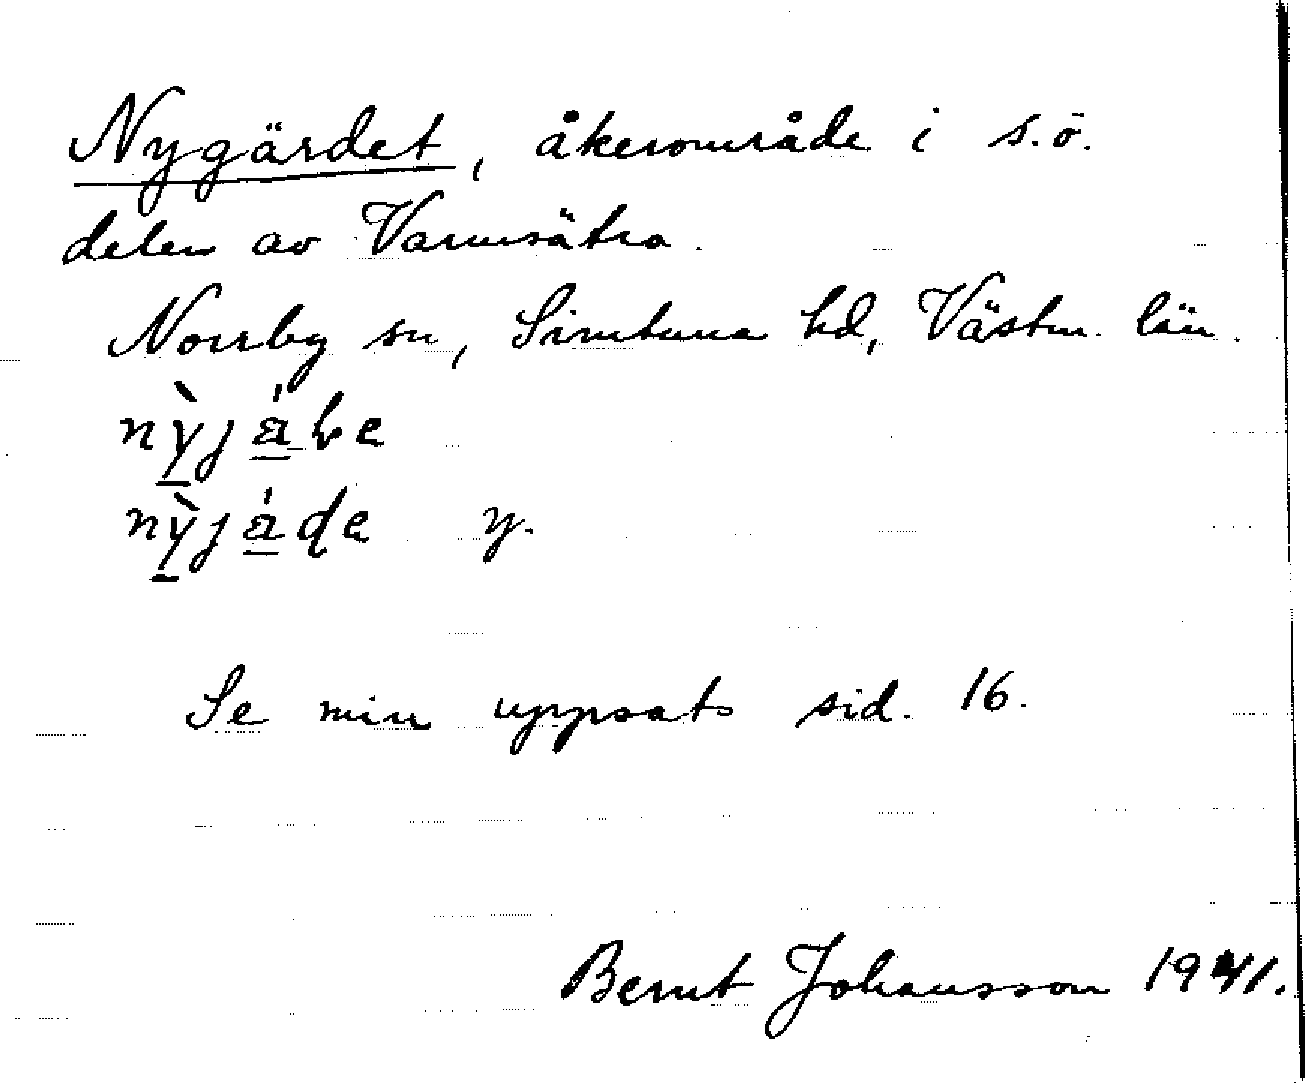 Nygärdet, åkerområde i s.ö.
delen av Varmsätra.
Norrby sn, Simtuna hd, Västm. län.
Se min uppsats sid. 16.
Bernt Johansson 1941.